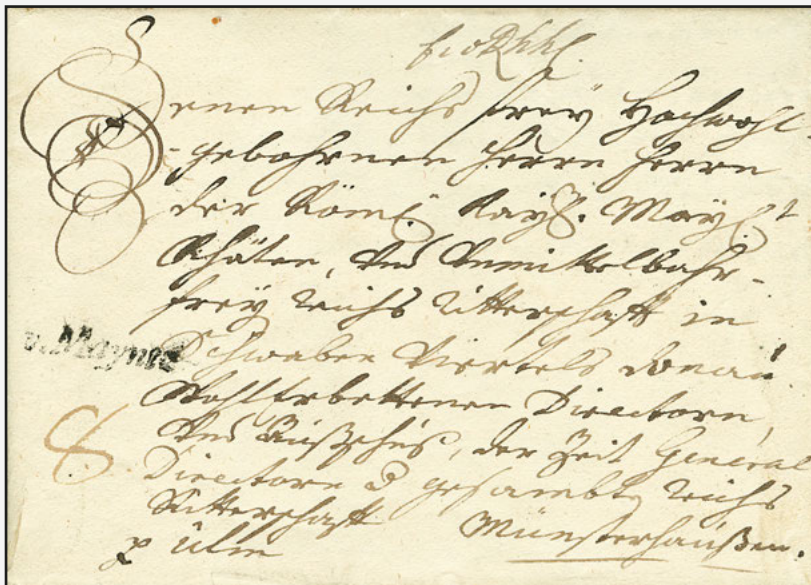 Denen Reichs Frey Hochwohl-
-gebohrnen Herrn Herrn
der Röm. Kayß. Mayt.
Rhäten, und Unmittelbahr-
frey Reichs Ritterschafft in
Schwaben Viertels Donau
Wohlerbettenen Directorn,
und Außschuß, der Zeit General
Directorn d gesambten Reichs
Ritterschafft Münsterhaußen.
p Ulm
v. Maynz